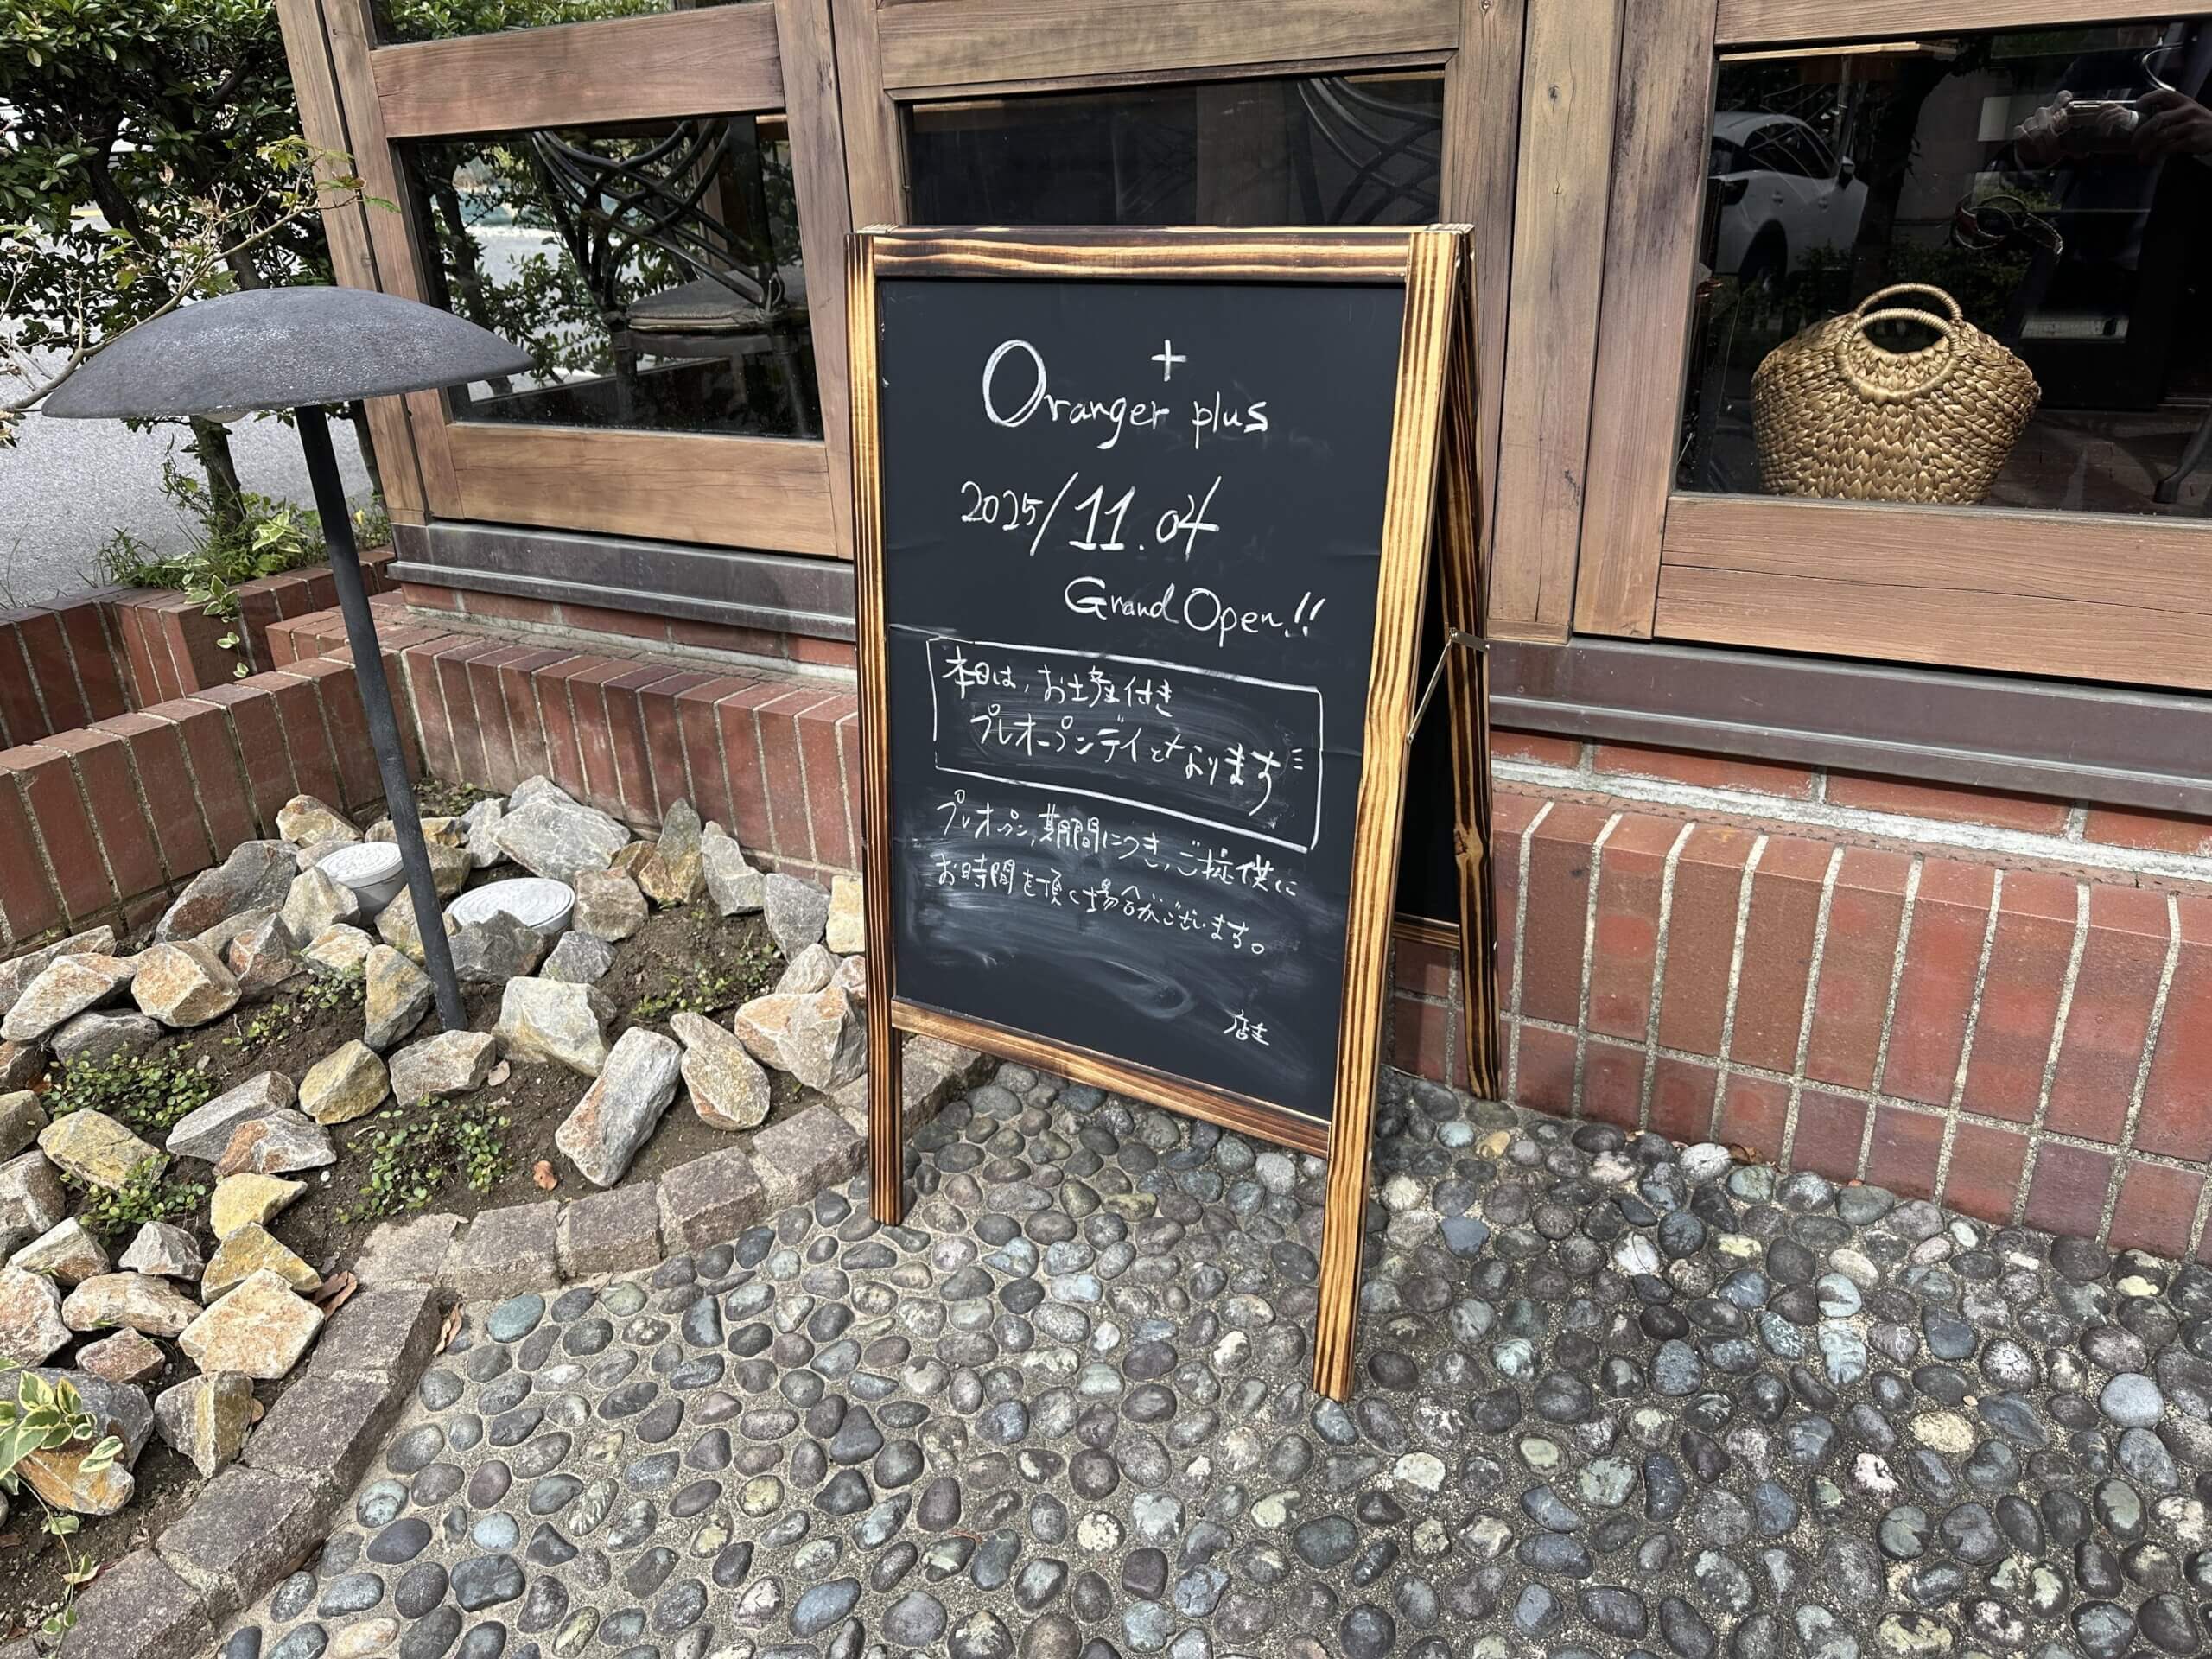 +
Oranger plus
2025/11.04
Grand Open!!
本日は、お土産付き
プレオープンデイとなります
プレオープン期間につき、ご提供に
お時間を頂く場合がございます。
店主